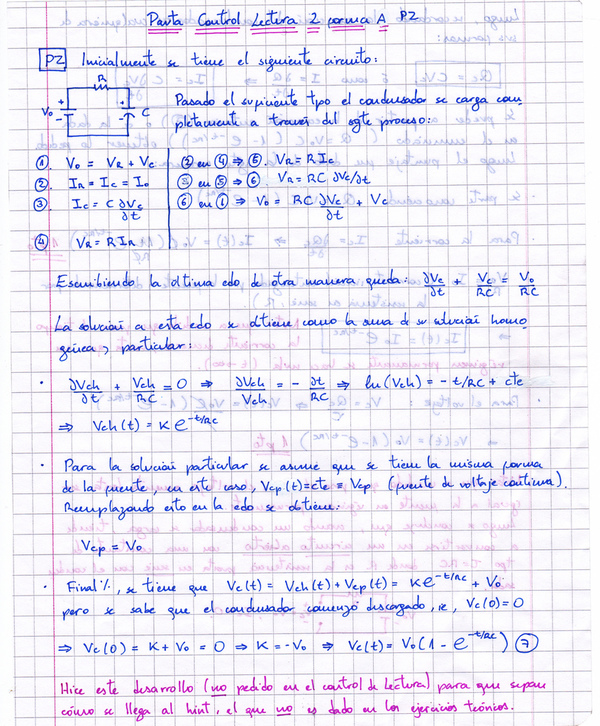 Pauta Control Lectura 2 forma A P2
P2 Inicialmente se tiene el siguiente circuito:
R
V₀ + - + - C
Pasado el suficiente tpo el condensador se carga com
pletamente a través del sgte proceso:
① V₀ = V_R + V_c
② I_R = I_c = I₀
③ I_c = C ∂V_c/∂t
④ V_R = R I_R
② en ④ ⇒ ⑤. V_R = R I_c
③ en ⑤ ⇒ ⑥. V_R = RC ∂V_c/∂t
⑥ en ① ⇒ V₀ = RC ∂V_c/∂t + V_c
Escribiendo la última edo de otra manera queda: ∂V_c/∂t + V_c/RC = V₀/RC
La solución a esta edo se obtiene como la suma de su solución homo
génea y particular:
· ∂V_ch/∂t + V_ch/RC = 0 ⇒ ∂V_ch/V_ch = - ∂t/RC ⇒ ln(V_ch) = -t/RC + cte
⇒ V_ch(t) = K e^(-t/RC)
· Para la solución particular se asume que se tiene la misma forma
de la fuente, en este caso, V_cp(t)=cte = V_cp (fuente de voltaje continua).
Reemplazando esto en la edo se obtiene:
V_cp = V₀
· Final%, se tiene que V_c(t) = V_ch(t) + V_cp(t) = K e^(-t/RC) + V₀
pero se sabe que el condensador comenzó descargado, ie, V_c(0) = 0
⇒ V_c(0) = K + V₀ = 0 ⇒ K = -V₀ ⇒ V_c(t) = V₀(1 - e^(-t/RC)) ⑦
Hice este desarrollo (no pedido en el control de lectura) para que sepan
cómo se llega al hint, el que no es dado en los ejercicios teóricos.